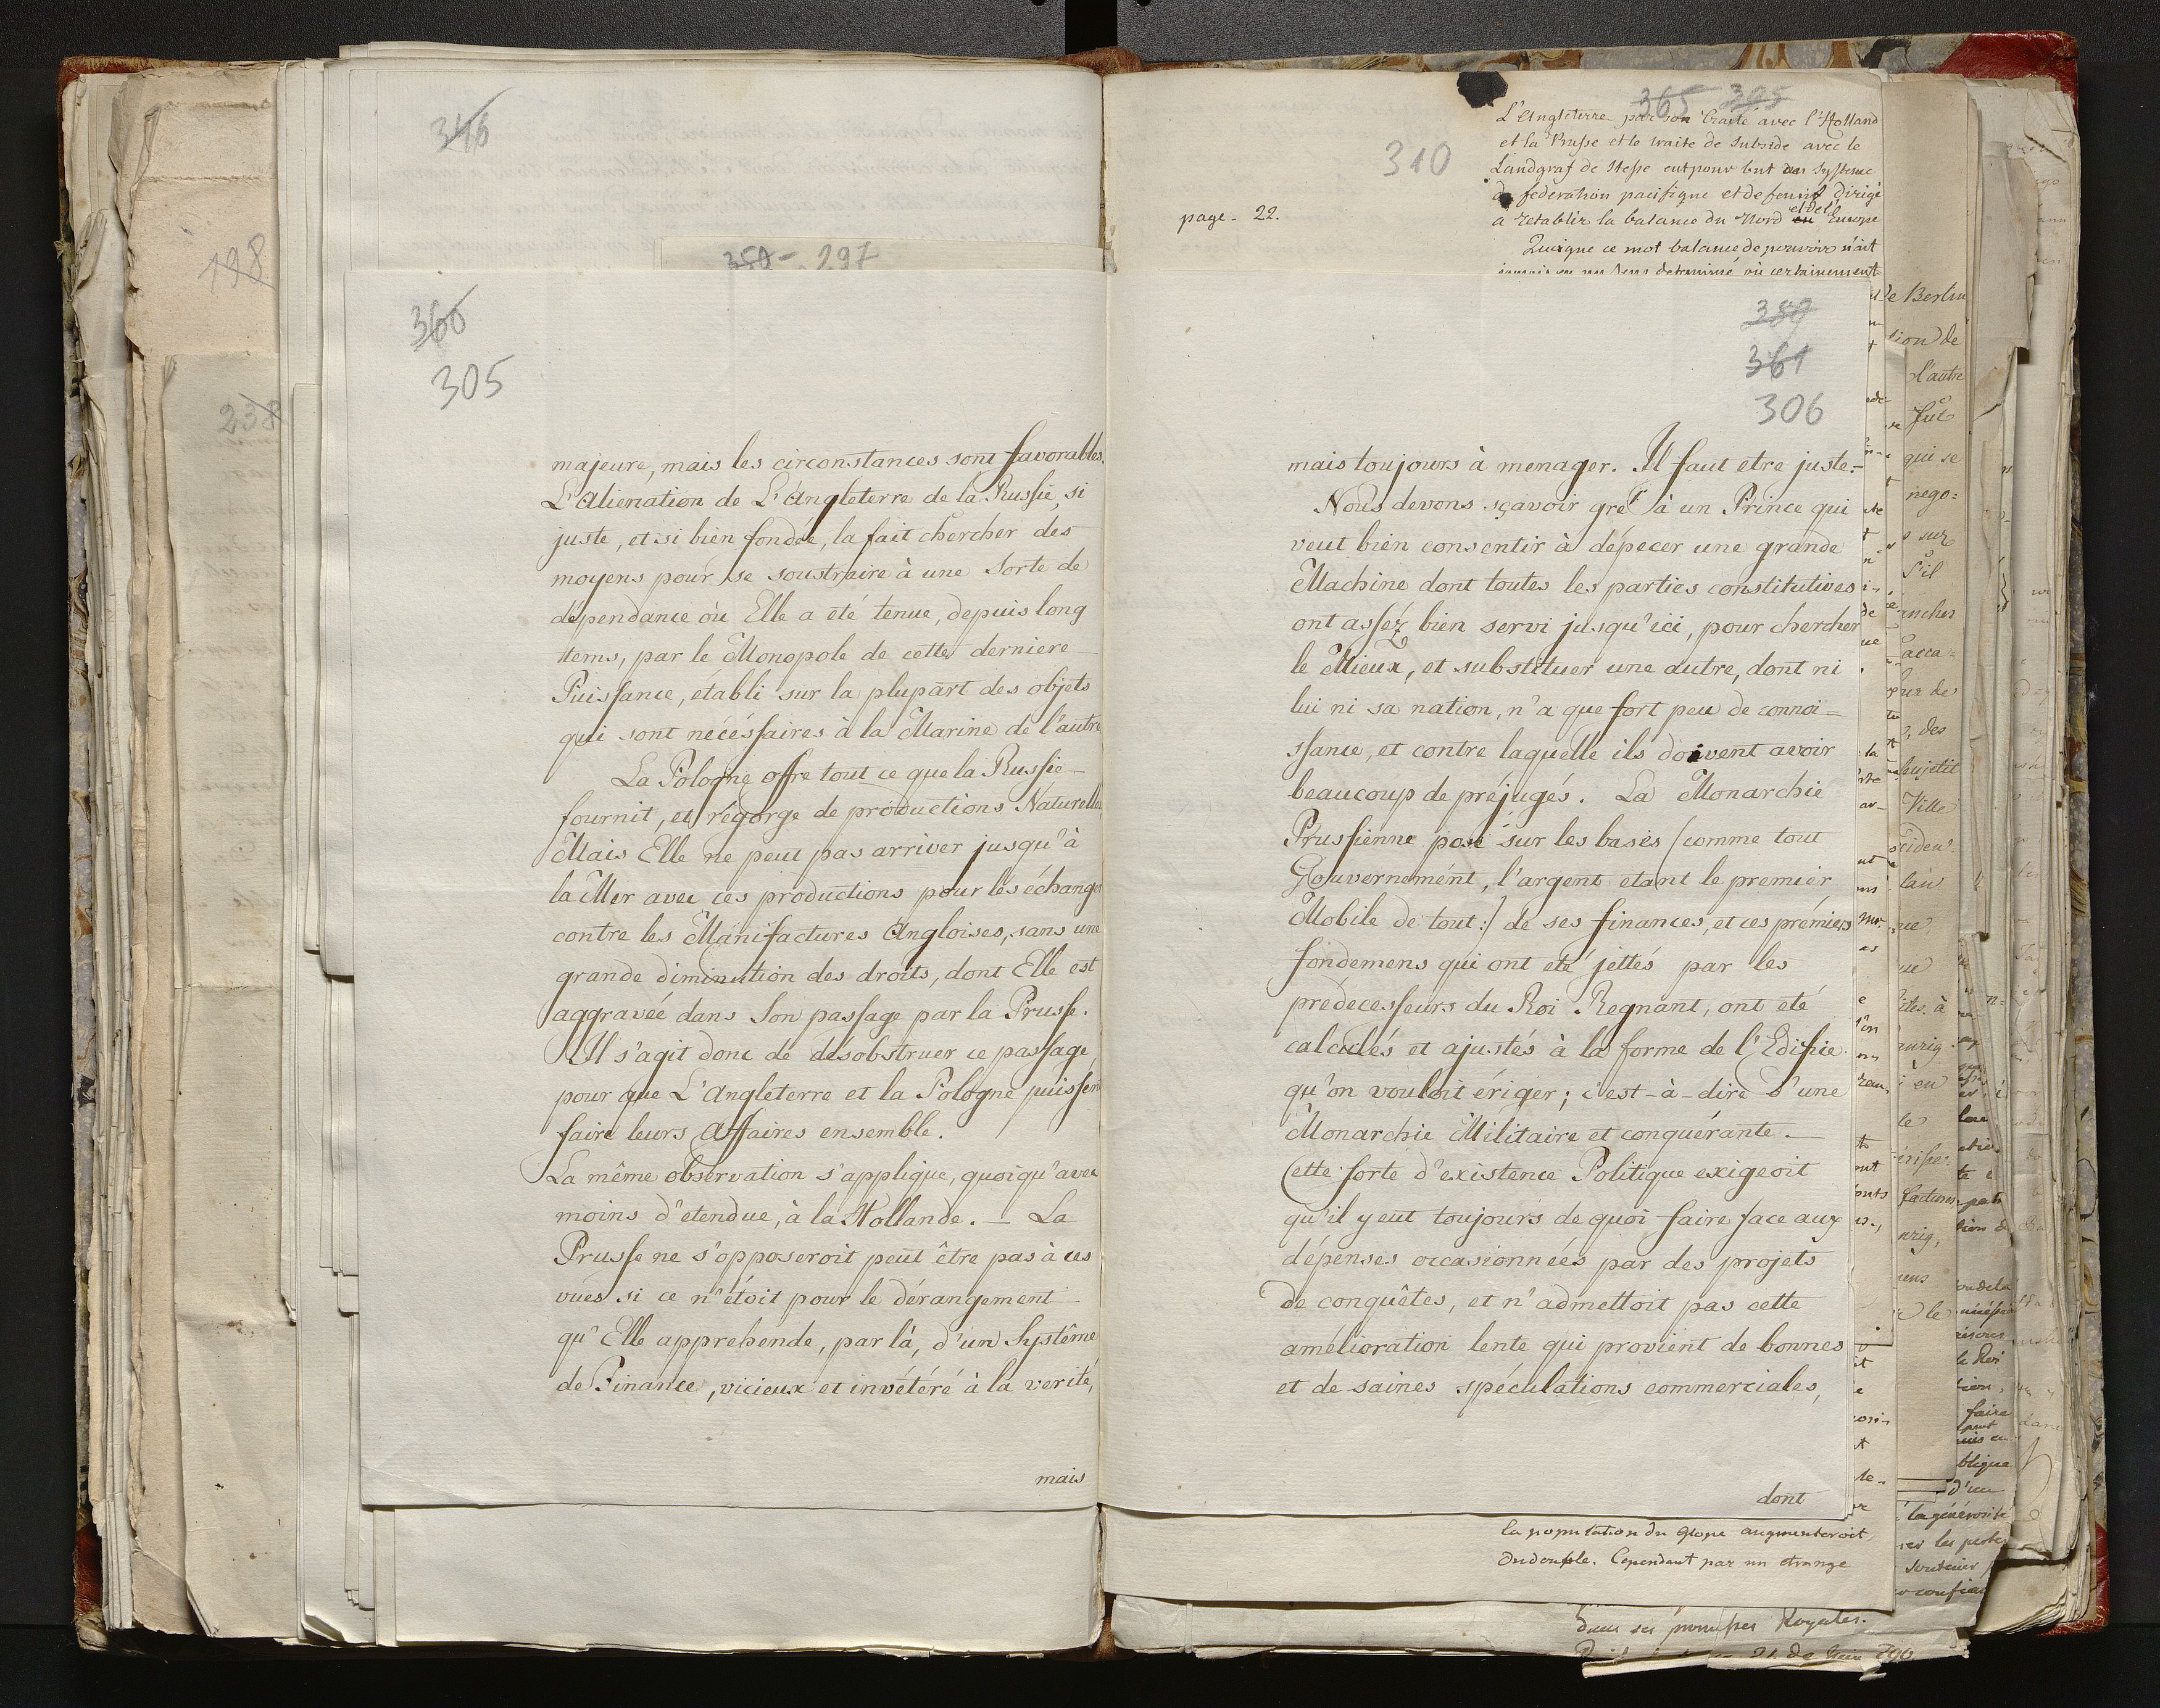 346
198
238
350 - 297
360
305
majeure, mais les circonstances sont favorables.
L'Alienation de L'Angleterre de la Russie, si
juste, et si bien fondée, la fait chercher des
moyens pour se soustraire à une Sorte de
dépendance où Elle a eté tenue, depuis long
tems, par le Monopole de cette derniere
Puissance, établi sur la plupart des objets
qui sont nécéssaires à la Marine de l'autre
La Pologne offre tout ce que la Russie
fournit, et régorge de productions Naturelles
Mais Elle ne peut pas arriver jusqu'à
la Mer avec ces productions pour les échanger
contre les Manifactures Angloises, sans une
grande diminution des droits, dont Elle est
aggravéé dans Son passage par la Prusse.
Il s'agit donc de désobstruer ce passage,
pour que L'Angleterre et la Pologne puissent
faire leurs Affaires ensemble.
La même observation s'applique, quoiqu'avec
moins d'etendue, à la Hollande. — La
Prusse ne s'opposeroit peut être pas à ces
vúes si ce n'étoit pour le dérangement
qu'Elle apprehende, par là, d'un Systême
de Finance, vicieux et invétéré à la verité,
mais
365 395
L'Angleterre par son traité avec l'Holland
et la Prusse et le traité de Subside avec le
Landgraf de Hesse eut pour but un Systeme
de federation pacifique et defensif dirigé
a retablir la balance du Nord et de l'Europe
310
page - 22.
Quoique ce mot balance de pouvoir n'ait
determiné, où certainement
380
361
306
mais toujours à menager. Il faut etre juste. —
Nous devons sçavoir gré à un Prince qui
veut bien consentir à dépecer une grande
Machine dont toutes les parties constitutives
ont asséz bien servi jusqu'ici, pour chercher
le Mieux, et substituer une autre, dont ni
lui ni sa nation, n'a que fort peu de connoi=
ssance, et contre laquelle ils doivent avoir
beaucoup de préjugés. La Monarchie
Prussienne posé sur les bases (comme tout
Gouvernemént, l'argent etant le premier
Mobile de tout:) de ses finances, et ces prémiers
fondemens qui ont eté jettés par les
prédecesseurs du Roi Regnant, ont eté
calculés et ajustés à la forme de l'Edifice
qu'on vouloit ériger; c'est-à-dire d'une
Monarchie Militaire et conquérante. —
Cette sorte d'existence Politique exigeoit
qu'il y eut toujours de quoi faire face aux
dépenses occasionnéés par des projets
de conquêtes, et n'admettoit pas cette
amélioration lente qui provient de bonnes
et de saines spéculations commerciales,
dont
la population du Globe augmenteroit
du double. Cependant par un etrange
dans ses promesses Royales.